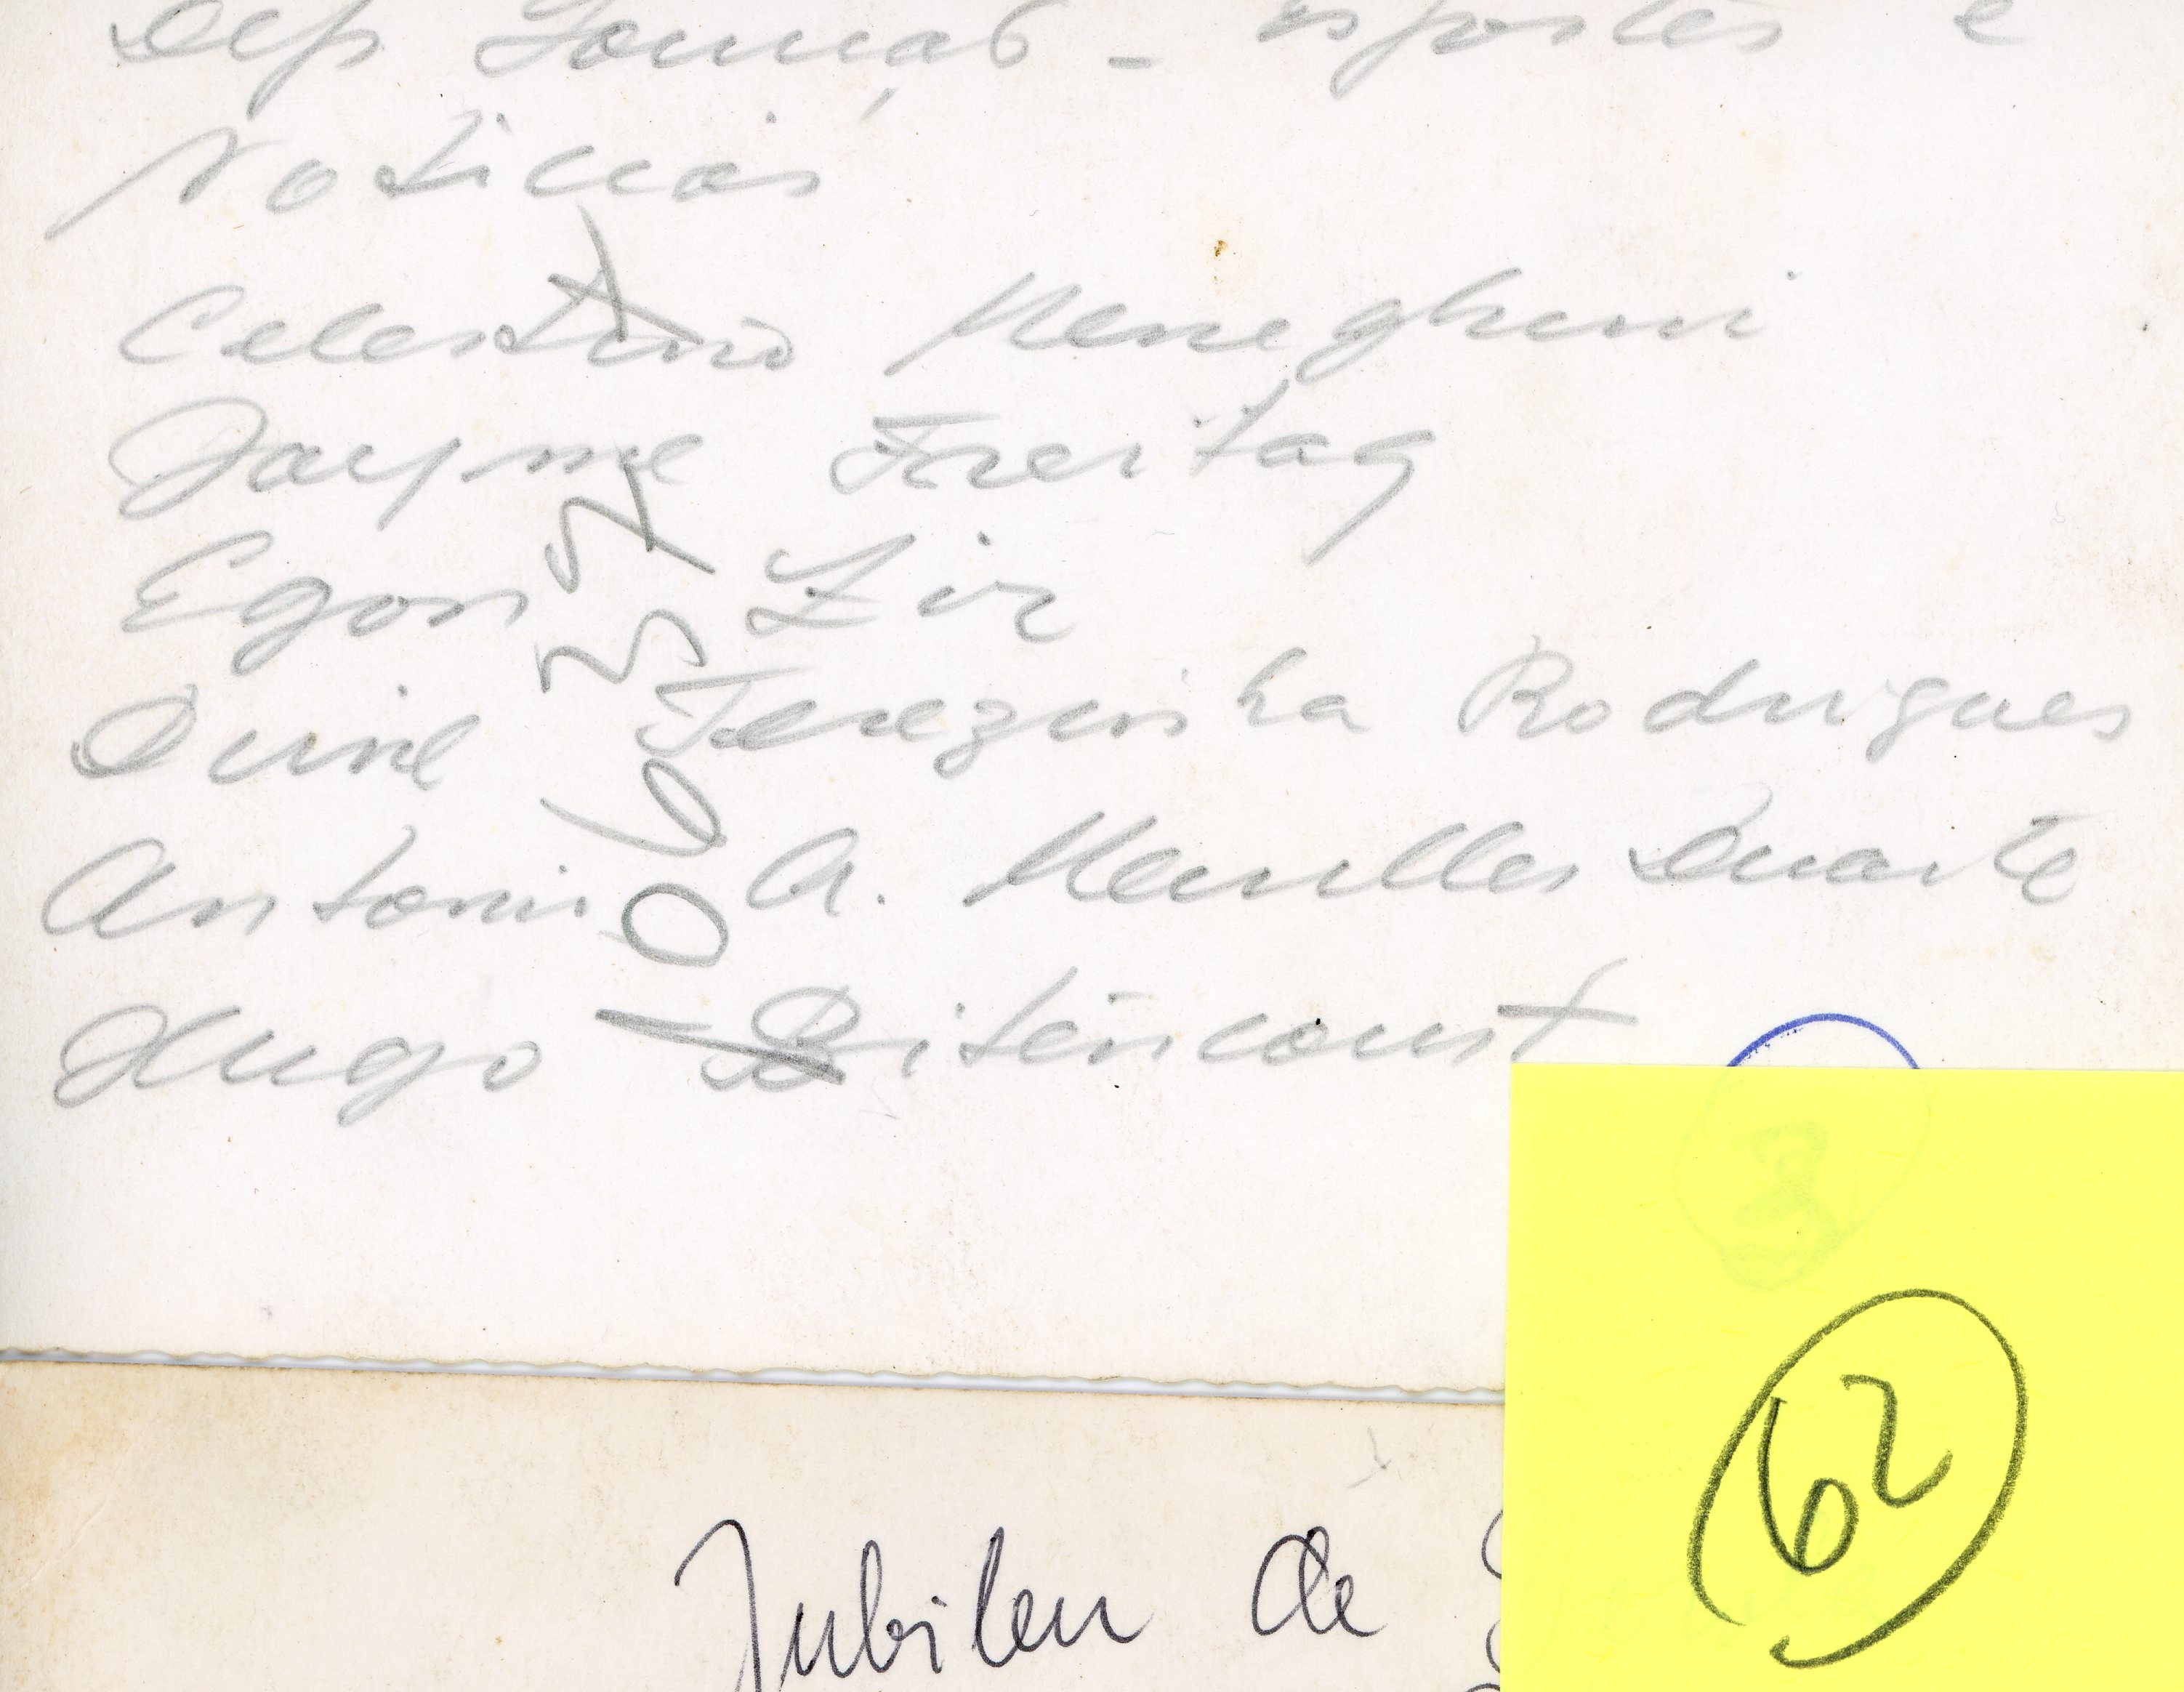 Dep Jornais - esportes e
Noticias
Celestino Meneghini
Jayme Freitag
Egon Zir
Terezinha Rodrigues
Antonio A. Meirelles Duarte
Hugo Bitencourt
3
62
Jubileu de